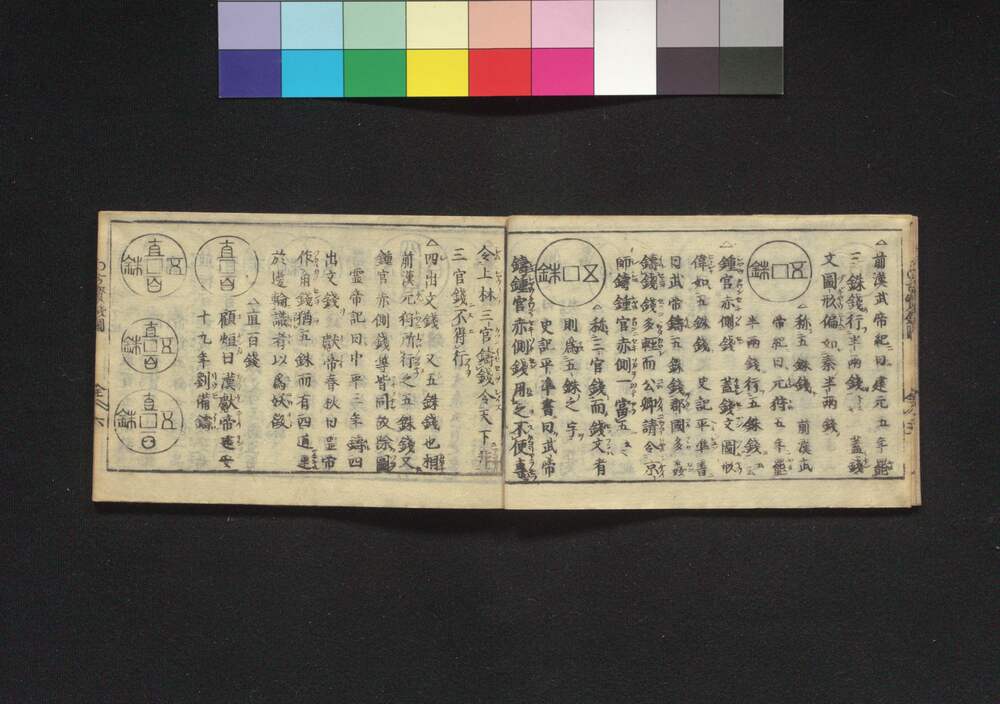 △前漢武帝紀曰建元五年罷
三銖錢行半兩錢 蓋錢
文圖形偏如秦半兩錢
五銖
△称五銖錢 前漢武
帝紀曰元狩五年罷
半兩錢行五銖錢
△鍾官赤側錢 蓋錢文圖形
偉如五銖錢 史記平準書
曰武帝鑄五銖錢郡國多姦
鑄錢錢多輕而公卿請令京
師鑄鍾官赤側一當五
五銖
△称三官錢而錢文有
則為五銖之字
史記平準書曰武帝
鑄鍾官赤側錢用之不便
令上林三官鑄錢令天下非
三官錢不肯行
△四出文錢 又五銖錢也相
前漢元狩所行之五銖錢又
鍾官赤側錢等皆同故除圖
靈帝記曰中平三年鑄四
出文錢 獻帝春秋曰靈帝
作角錢猶五銖而有四道連
於邊輪識者以為妖
△直百錢
直百
顧烜曰漢獻帝建安
十九年劉備鑄
直百五銖
直百銖
直百五銖